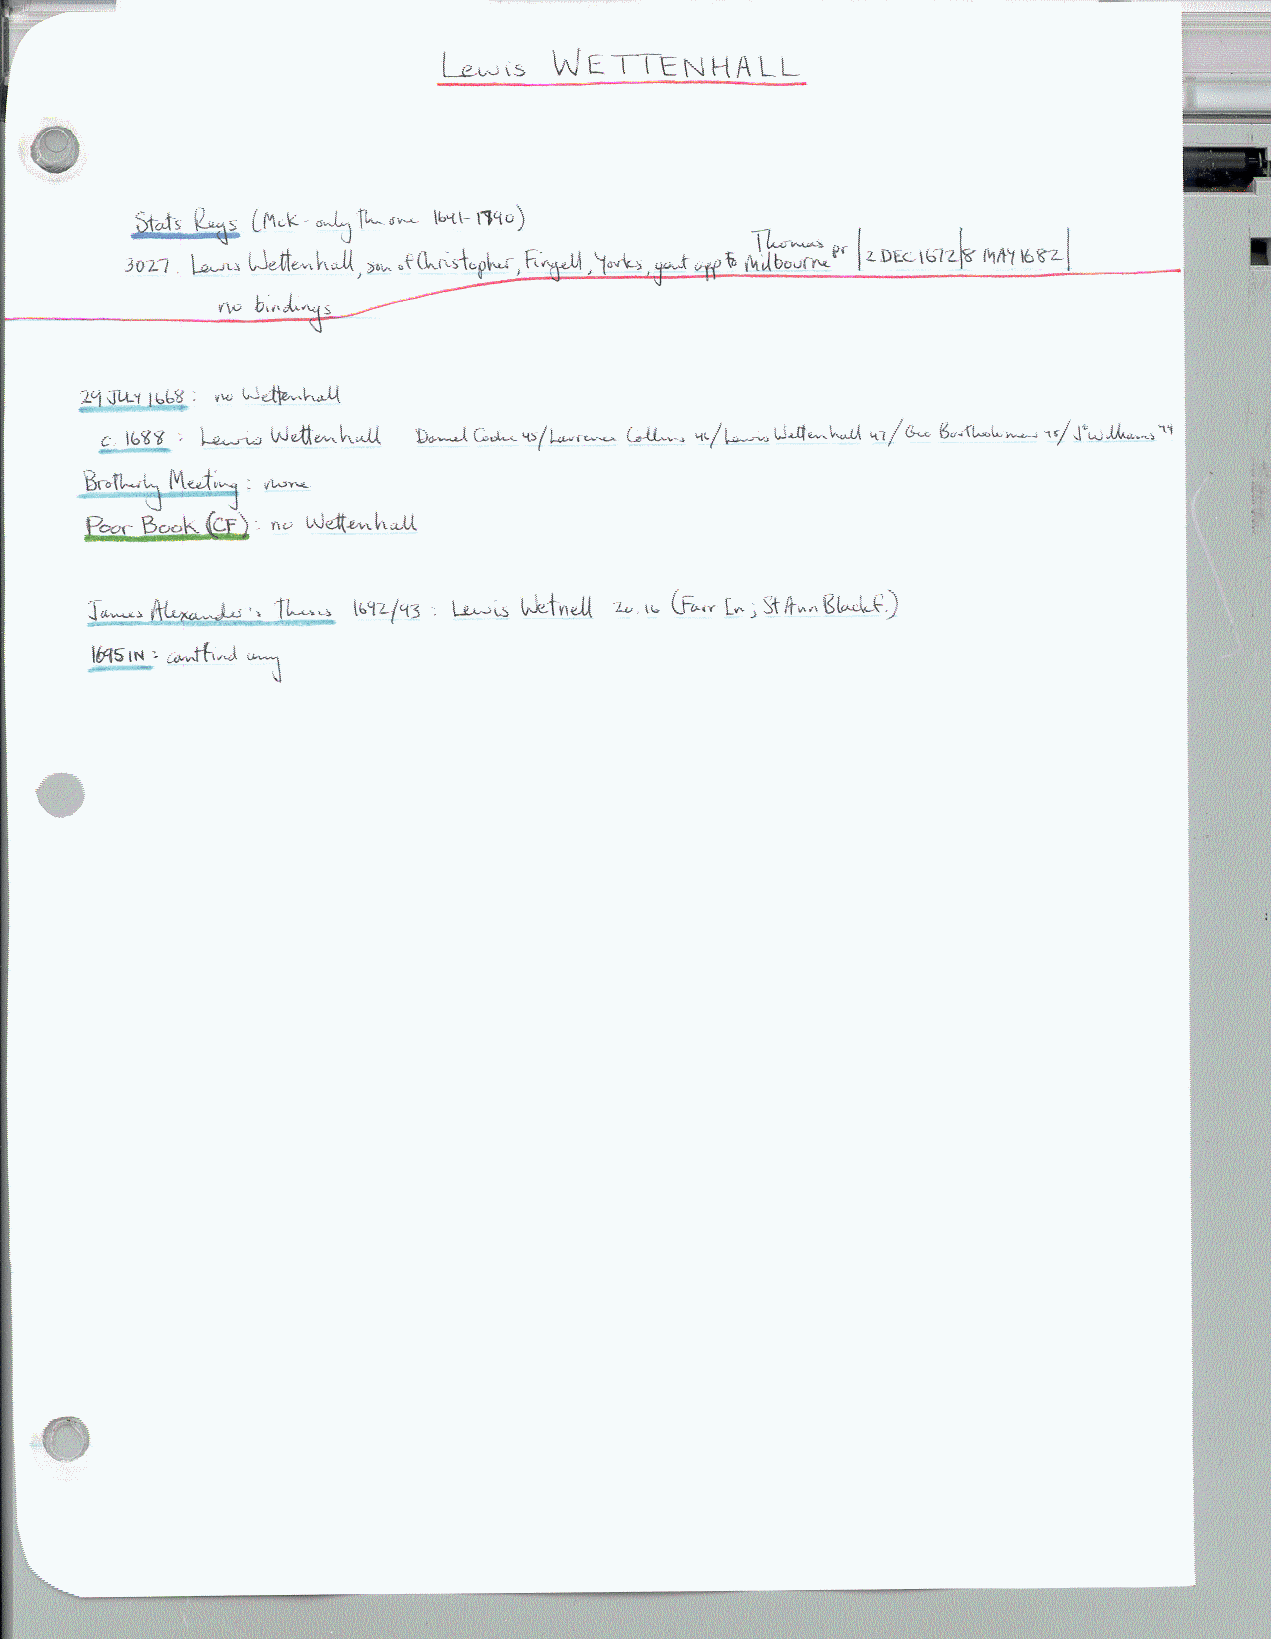 Lewis WETTENHALL
Stat's Regs (McK - only the one 1641-1700)
3027. Lewis Wettenhall, son of Christopher, Firgell, Yorks, gent app to Thomas Milbourne pr |2 DEC 1672|8 MAY 1682|
no bindings
29 JULY 1668: no Wettenhall
c. 1688: Lewis Wettenhall Daniel Cooke 45/Lawrence Collins 46/Lewis Wettenhall 47/Geo Bartholomew 48/Jn Williams 49
Brotherly Meeting: none
Poor Book (CF): no Wettenhall
James Alexander's Thesis 1692/93: Lewis Wetnell 20.16 (Farr In; St Ann Blackf.)
1695 IN: cant find any